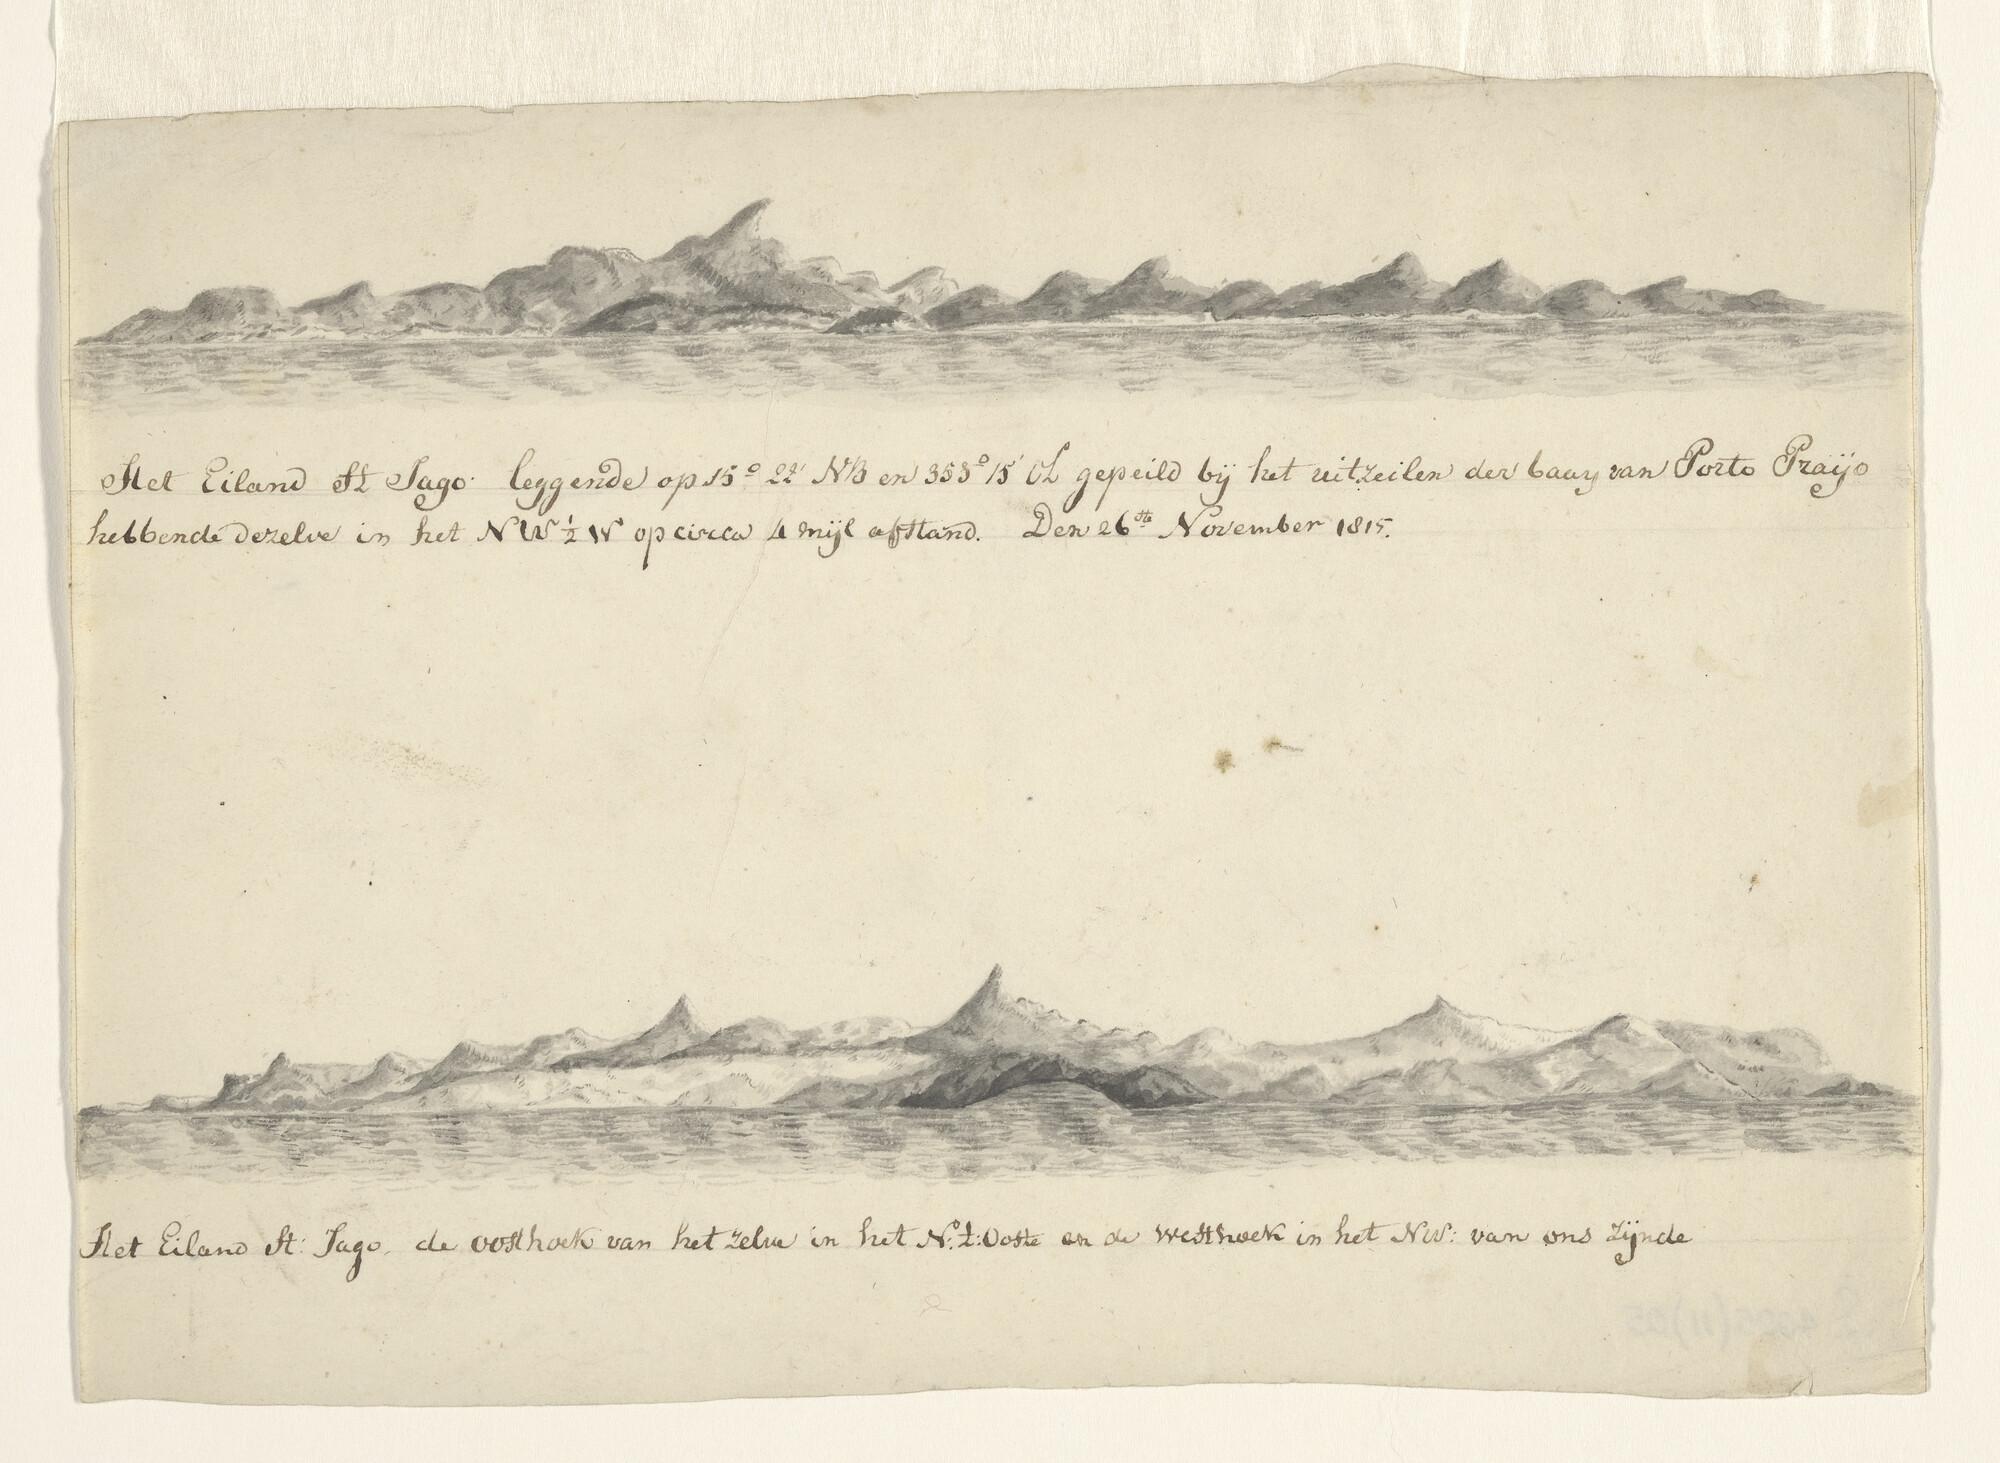 Het Eiland St Jago. leggende op 15° 22' NB en 353° 15' OL gepeild bij het uitzeilen der baay van Porto Praijo
hebbende dezelve in het NW ½ W op circa 4 mijl afstand. Den 26ste November 1815.
Het Eiland St: Jago. de oosthoek van het zelve in het N. t: Ooste en de westhoek in het NW: van ons zijnde